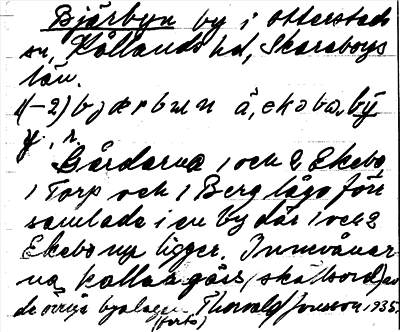 Bjärbyn by i Otterstads
sn, Kållands hd, Skaraborgs
län.
bjærbun å, ekəbo, by
Gårdarna 1 och 2 Ekebo,
1 Torp och 1 Berg låga för
samlade i en by där 1 och 2
Ekebo nu ligger. Innevånar
na kallas (skällsord) av
de övriga byalagen. Thorvald Jonsson 1935.
(forts)